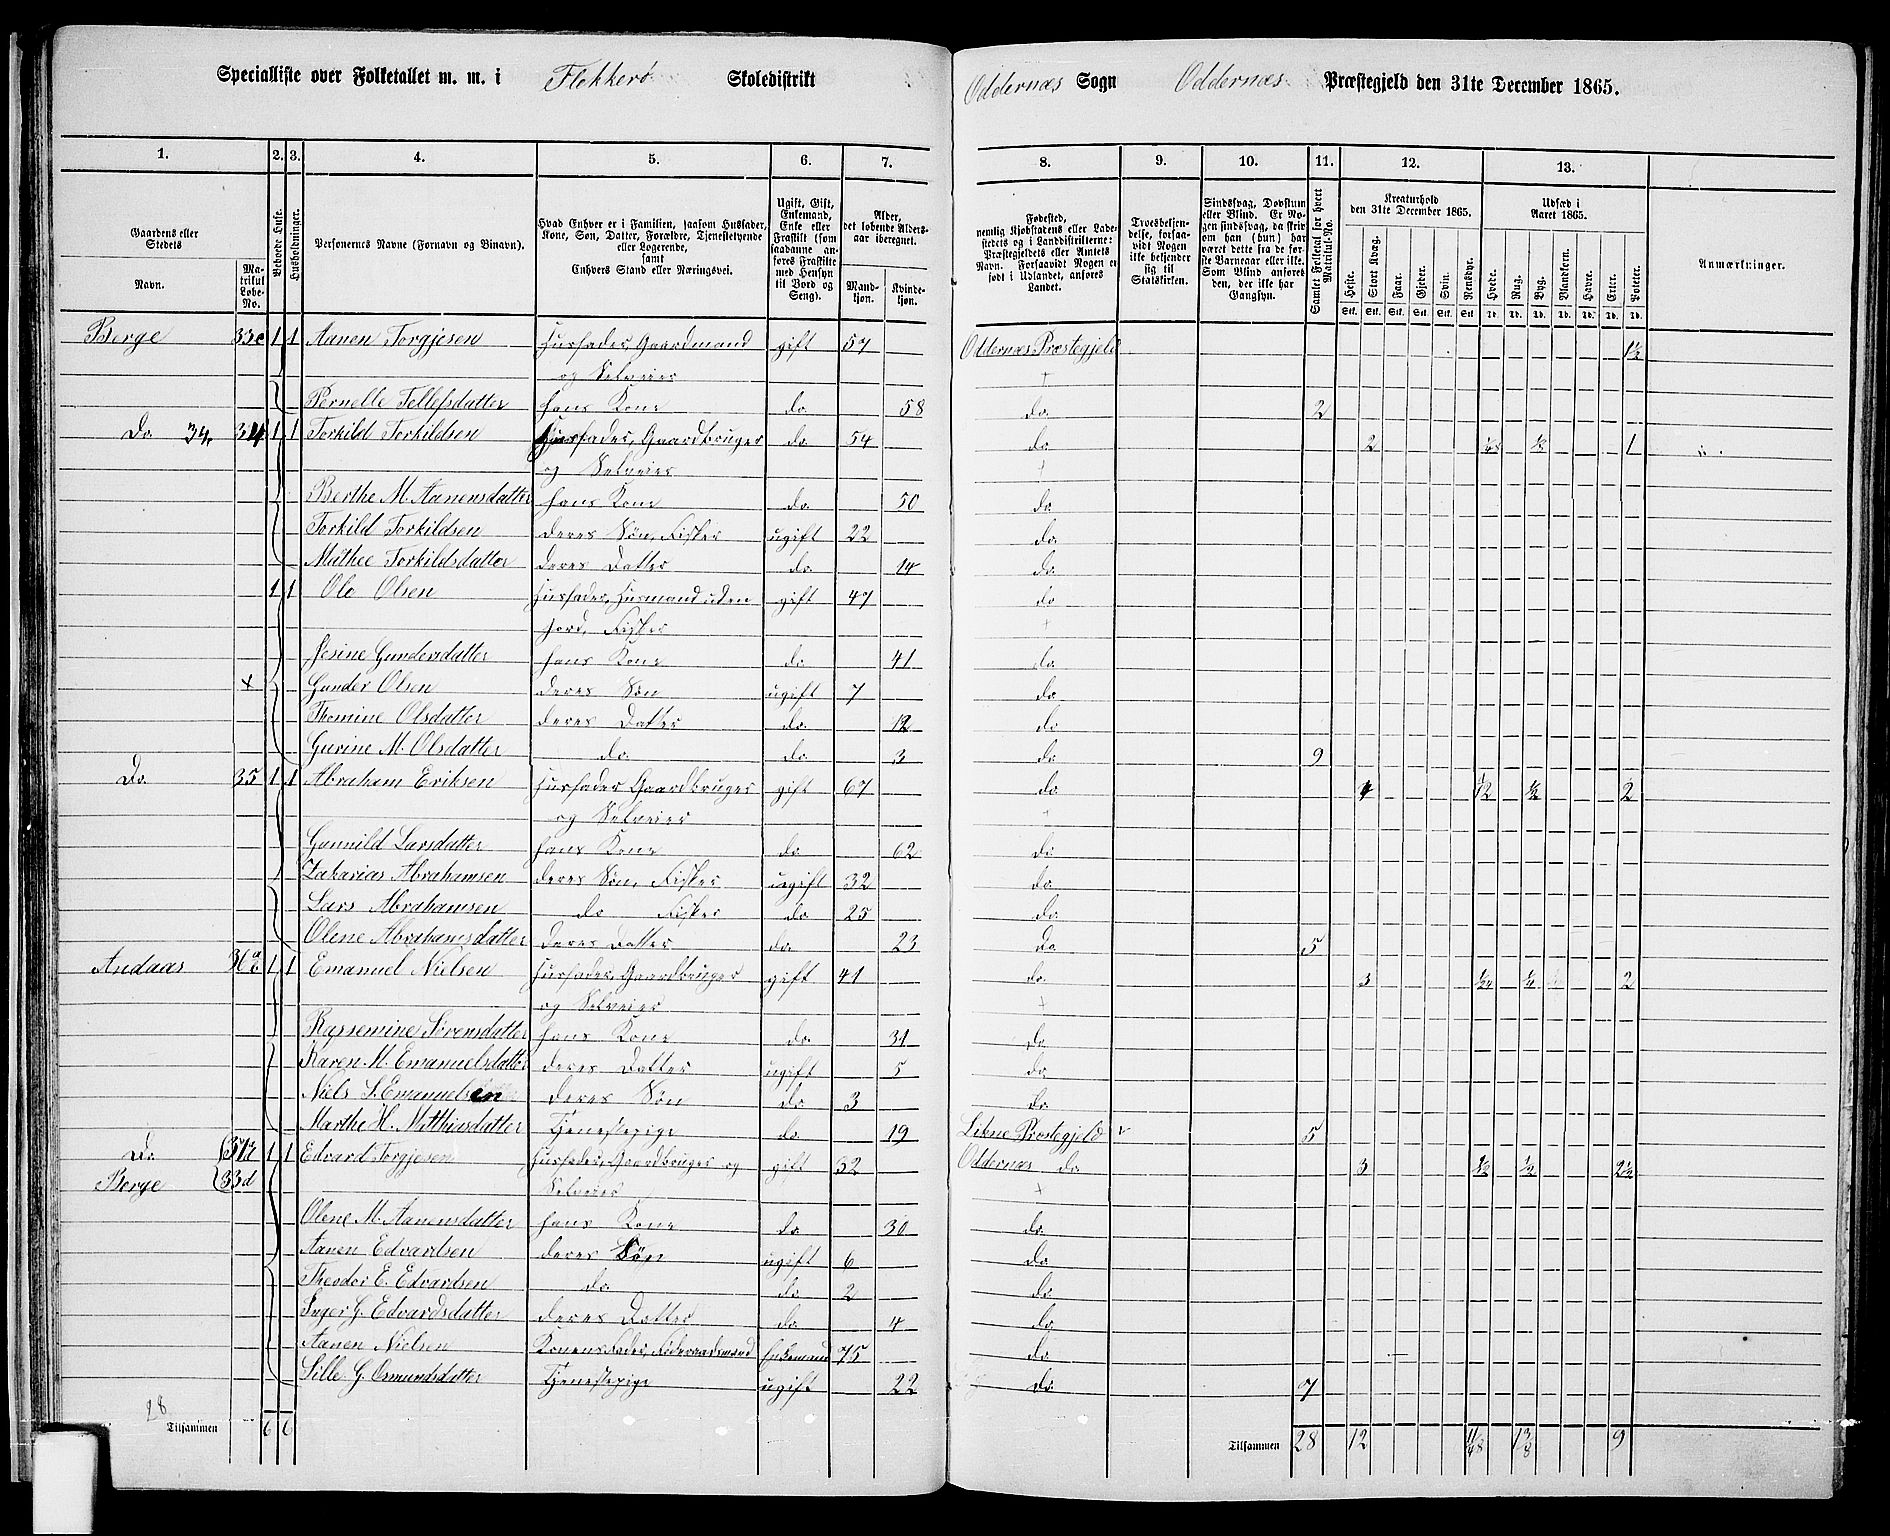 Specialliste over Folketallet m. m. i Flekkerø Skoledistrikt Oddernæs Sogn Oddernæs Præstegjeld den 31te December 1865.
1. 2. 3. 4. 5. 6. 7. 8. 9. 10. 11. 12. 13.
Gaardens eller Stedets Navn. Matrikul Løbe-No.
Beboede Huse.
Husholdninger.
Personernes Navne (Fornavn og Binavn).
Hvad Enhver er i Familien, saasom Husfader, Kone, Søn, Datter, Forældre, Tjenestetyende eller Logerende, samt Enhvers Stand eller Næringsvei.
Ugift, Gift, Enkemand, Enke eller Fraskilt (som saadanne anføres Fraskilte med Hensyn til Bord og Seng).
Alder, det løbende Aldersaar iberegnet. Mandkjøn. Kvindekjøn.
Fødested, nemlig Kjøbstadens eller Ladestedets og i Landdistrikterne: Præstegjeldets eller Amtets Navn. Forsaavidt Nogen er født i Udlandet, anføres Landet.
Troesbekjendelse, forsaavidt Nogen ikke bekjender sig til Statskirken.
Sindssvag, Døvstum eller Blind. Er Nogen sindssvag, da skrives om han (hun) har været dette fra de første Barneaar eller ikke. Som Blind anføres den, der ikke har Gangsyn.
Samlet Folketal for hvert Matrikul-No.
Kreaturhold den 31te December 1865. Heste. Stort Kvæg. Faar. Gjeder. Svin. Rensdyr.
Udsæd i Aaret 1865. Hvede. Rug. Byg. Blandkorn. Havre. Erter. Poteter.
Anmærkninger.
Berge 33c 1 1 Aanen Torgjesen Husfader, Gaardmand gift 57 Oddernæs Præstegjeld 1½
og Selveier +
Pernelle Tellefsdatter hans Kone do. 58 do. 2
Do. 34. 34 1 1 Torkild Torkildsen Husfader, Gaardbruger do. 54 do. 2 1
og Selveier +
Berthe M. Aanensdatter hans Kone do. 50 do
Torkild Torkildsen deres Søn, Fisker ugift 22 do.
Mathee Torkildsdatter deres Datter do. 14 do.
1 1 Ole Olsen Husfader, Husmand uden gift 47 do
Jord, Fisker +
Jesine Gundersdatter hans Kone do. 41 do
x Gunder Olsen deres Søn ugift 7 do.
Thomine Olsdatter deres Datter do. 12 do
Gurine M. Olsdatter do. do. 3 do 9
Do. 35 1 1 Abraham Eriksen Husfader Gaardbruger gift 67 do 4 ½ ½ 2
og Selveier +
Gunnild Larsdatter hans Kone do 62 do
Zakarias Abrahamsen deres Søn, Fisker ugift 32 do.
Lars Abrahamsen do Fisker do 25 do.
Olene Abrahamsdatter deres Datter do. 23 Do 5
Andaas 36 a 1 1 Emanuel Nielsen Husfader, Gaardbruger gift 41 do. 3 ¼ 2
og Selveier +
Rassemine Sørensdatter hans Kone do. 31 do
Karen M. Emanuelsdatter deres Datter ugift 5 do.
Niels S. Emanuelsen deres Søn do 3 do.
Marthe H. Matthiasdatter Tjenestepige do 19 Lihne Præstegjeld v 5
Do. 37 1 1 Edvard Torgjesen Husfader, Gaardbruger og gift 32 Oddernæs do. 3 ½ ½ 2½
Berge 33d Selveier +
Olene M. Aanensdatter hans Kone do 30 do.
Aanen Edvardsen deres Søn ugift 6 do.
Theodor E. Edvardsen do. do 2 do.
Inger G. Edvardsdatter deres Datter do. 4 do.
Aanen Nielsen Konens Fader, Føderaadsmand Enkemand 75 do.
Sille G. Osmundsdatter Tjenestepige ugift 22 do. 7
28
Tilsammen 6 6 Tilsammen 28 12 11/48 13/8 9